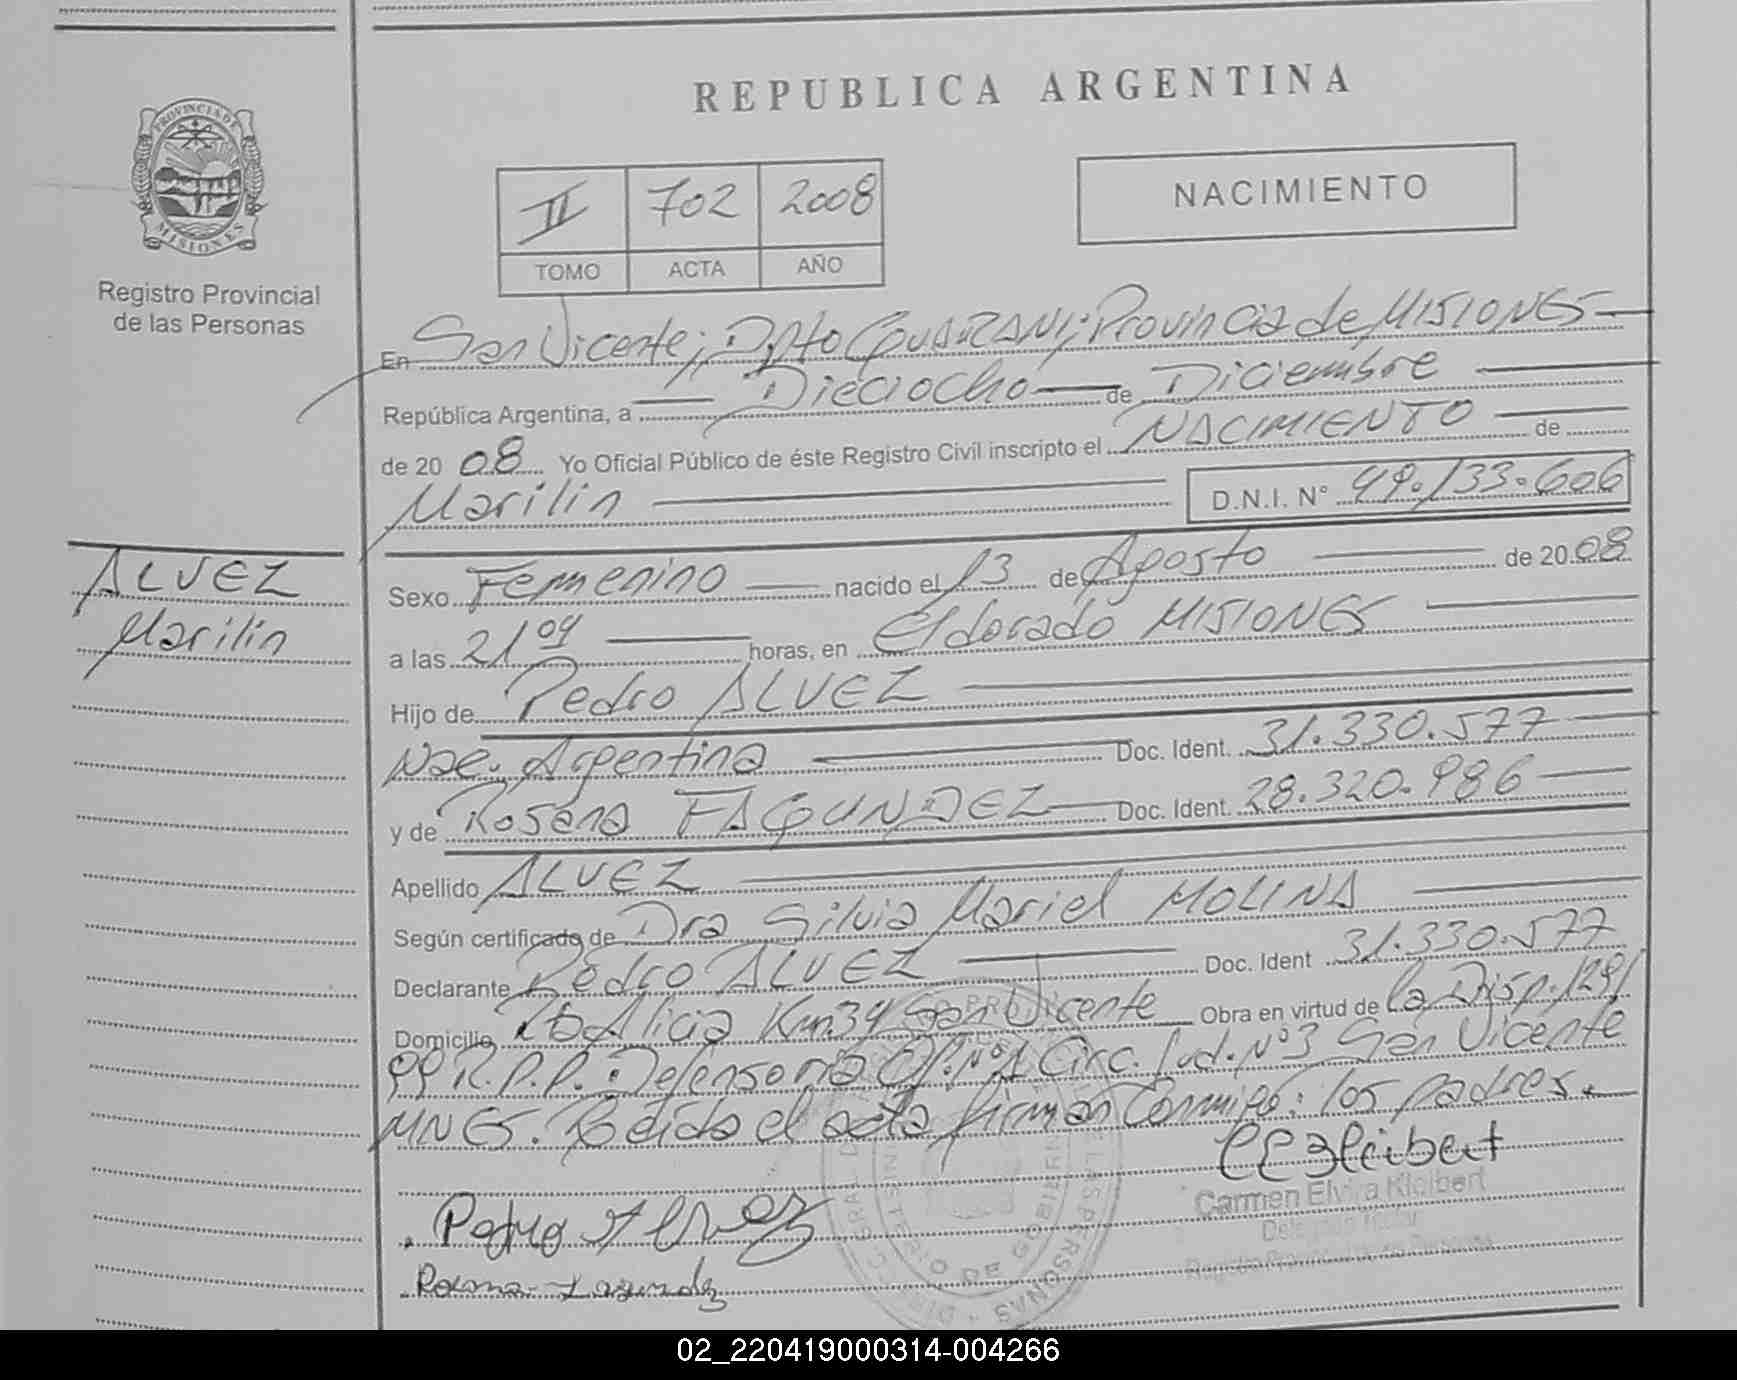 REPUBLICA ARGENTINA
PROVINCIA DE
MISIONES
Registro Provincial
de las Personas
II 702 2008
TOMO ACTA AÑO
NACIMIENTO
En San Vicente; Dpto GUARANI; Provincia de MISIONES
República Argentina, a Dieciocho de Diciembre
de 2008 Yo Oficial Público de éste Registro Civil inscripto el NACIMIENTO de
Marilin D.N.I. N° 49.133.606
ALVEZ
Marilin
Sexo Femenino nacido el 13 de Agosto de 2008
a las 21 04 horas, en Eldorado MISIONES
Hijo de Pedro ALVEZ
Nac. Argentina Doc. Ident. 31.330.577
y de Rosana FAGUNDEZ Doc. Ident. 28.320.986
Apellido ALVEZ
Según certificado de Dra Silvia Mariel MOLINA
Declarante Pedro ALVEZ Doc. Ident 31.330.577
Domicilio Pto Alicia Km 34 San Vicente Obra en virtud de la Disp. 1291
99 R.P.P. Defensoria Of. N°1 Circ. Jud. N°3 San Vicente
MNES. Leida el acta firman conmigo: los padres.
Carmen Elvira Kleibert
Delegado Titular
Registro Provincial de las Personas
Pedro Alvez
Rosana Fagundez
02_220419000314-004266